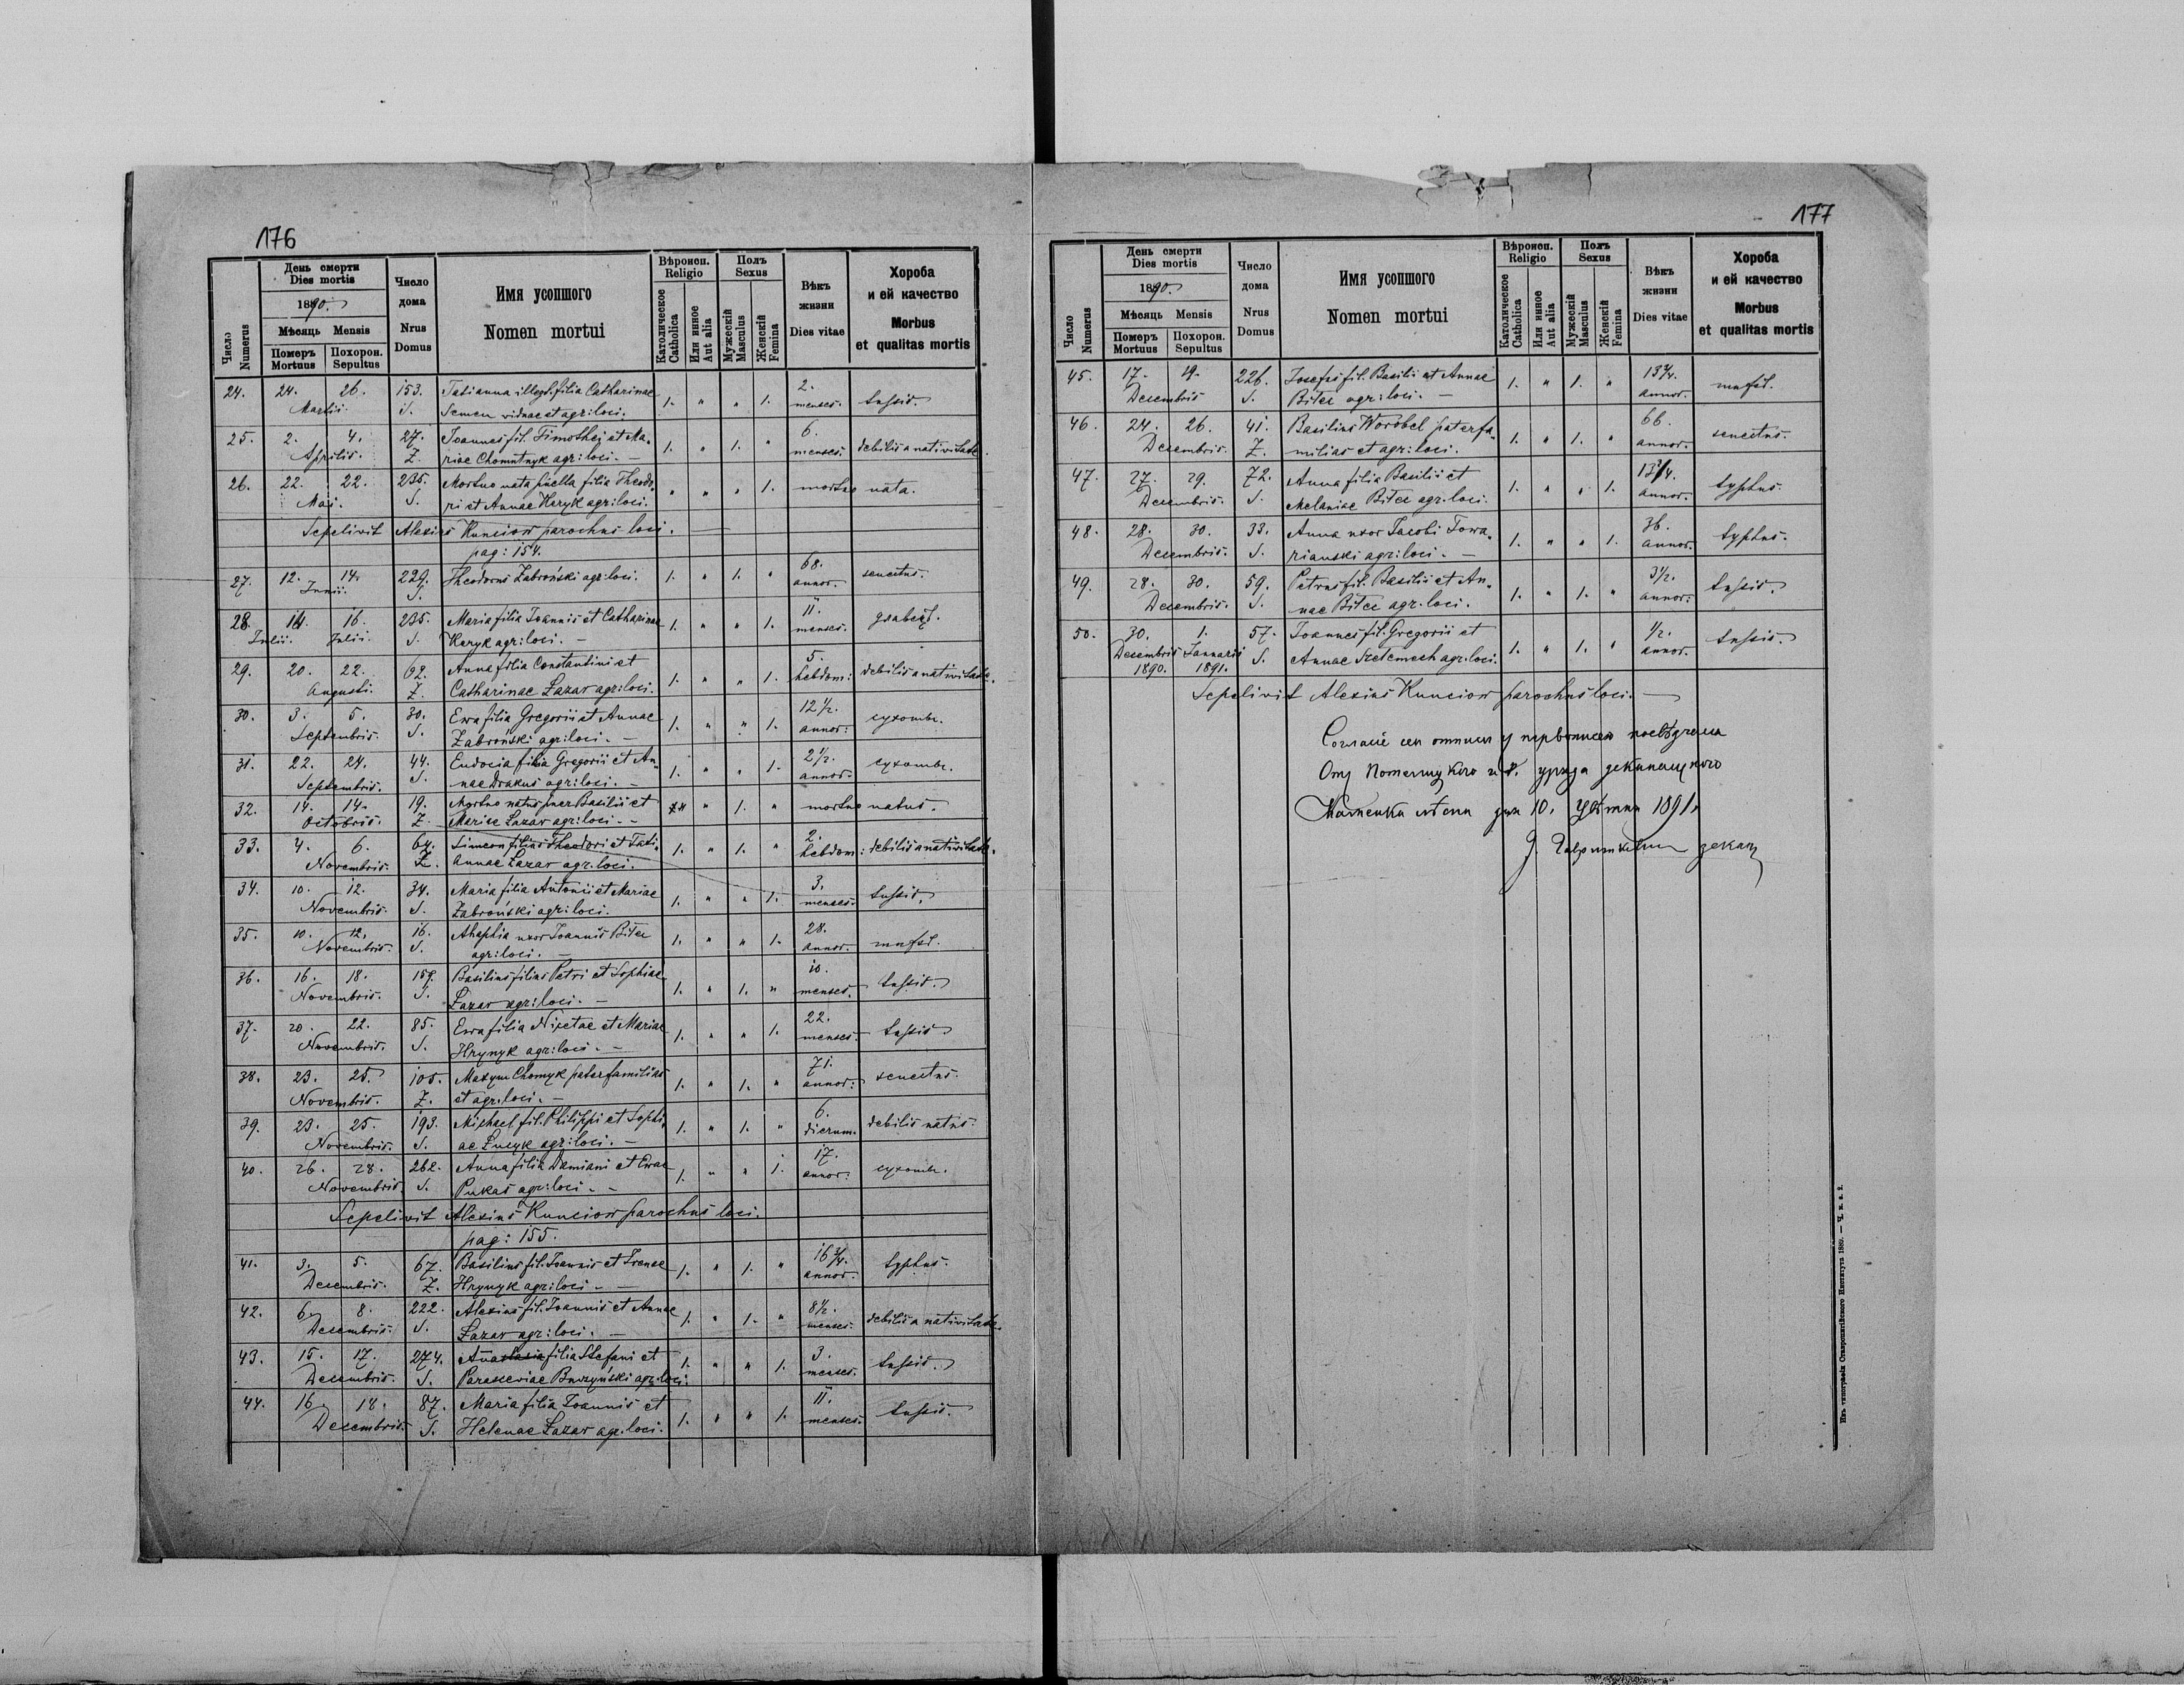 176
Число Numerus
День смерти
Dies mortis
1890.
Мѣсяць Mensis
Померъ Mortuus
Похорон. Sepultus
Число дома
Nrus Domus
Имя усопшого
Nomen mortui
Вѣроисп. Religio
Католическое Catholica
Или инное Aut alia
Полъ Sexus
Мужескій Masculus
Женскій Femina
Вѣкъ жизни
Dies vitae
Хороба и ей качество
Morbus et qualitas mortis
24. 24. 26. 153. Tatianna illegt. filia Catharinae 1. " " 1. 2. tussis.
Martii. S. Semen viduae et agr: loci. menses.
25. 2. 4. 27. Joannes fil. Timothei et Ma- 1. " 1. " 6. debilis a nativitate.
Aprilis. Z. riae Chomutnyk agr: loci. – menses.
26. 22. 22. 235. Mortuo nata puella filia Theodo- " " " 1. mortuo nata.
Maii. S. ri et Annae Keryk agr: loci.
Sepelivit Alexius Kunciow parochus loci.
pag: 154.
27. 12. 14. 229. Theodorus Zabroński agr: loci. 1. " 1. " 68. senectus.
Junii. S. annor.
28. 14. 16. 235. Maria filia Joannis et Catharinae 1. " " 1. 11.
Julii. Julii. S. Keryk agr: loci. – menses.
29. 20. 22. 62. Anna filia Constantini et 1. " " 1. 5. debilis a nativitate.
Augusti. Z. Catharinae Łazar agr: loci. hebdom:
30. 3. 5. 30. Ewa filia Gregorii et Annae 1. " " 1. 12 1/2. сухоты.
Septembris. S. Zabroński agr: loci. – annor:
31. 22. 24. 44. Eudocia filia Gregorii et An- 1. " " 1. 2 1/2. сухоты.
Septembris. S. nae Drakus agr: loci. – annor.
32. 14. 14. 19. Mortuo natus puer Basilii et " 1. " mortuo natus.
Octobris. Z. Mariae Łazar agr: loci. –
33. 4. 6. 64. Simeon filius Theodori et Tati- 1. " 1. " 2. debilis a nativitate.
Novembris. Z. annae Łazar agr. loci. hebdom:
34. 10. 12. 34. Maria filia Antonii et Mariae 1. " " 1. 3. tussis.
Novembris. S. Zabroński agr: loci. menses.
35. 10. 12. 16. Ahaphia uxor Joannis Bitec 1. " " 1. 28.
Novembris. S. agr: loci. – annor.
36. 16. 18. 159. Basilius filius Petri et Sophiae 1. " 1. " 10. tussis.
Novembris. S. Łazar agr: loci. – menses.
37. 20. 22. 85. Ewa filia Nicetae et Mariae 1. " " 1. 22. tussis
Novembris. S. Hrynyk agr: loci. – menses.
38. 23. 25. 105. Maxym Chomyk paterfamilias 1. " 1. " 71. senectus.
Novembris. Z. et agr. loci. – annor:
39. 23. 25. 193. Michael fil. Philippi et Sophi- 1. " 1. " 6. debilis natus.
Novembris. S. ae Łucyk agr: loci. – dierum.
40. 26. 28. 262. Anna filia Damiani et Ewae 1. " " 1. 17. сухоты.
Novembris. S. Pukas agr: loci. – annor.
Sepelivit Alexius Kunciow parochus loci.
pag: 155.
41. 3. 5. 67. Basilius fil. Joannis et Irenae 1. " 1. " 16 3/4. typhus.
Decembris. Z. Hrynyk agr: loci. – annor.
42. 6. 8. 222. Alexius fil. Joannis et Annae 1. " 1. " 8 1/2. debilis a nativitate.
Decembris. S. Łazar agr: loci. – menses.
43. 15. 17. 274. Anastasia filia Stefani et 1. " " 1. 3. tussis.
Decembris. S. Parasceviae Burzyński agr. loci. menses.
44. 16. 18. 87. Maria filia Joannis et 1. " " 1. 11. tussis.
Decembris. S. Helenae Łazar agr. loci. menses.
177
Число Numerus
День смерти
Dies mortis
1890.
Мѣсяць Mensis
Померъ Mortuus
Похорон. Sepultus
Число дома
Nrus Domus
Имя усопшого
Nomen mortui
Вѣроисп. Religio
Католическое Catholica
Или инное Aut alia
Полъ Sexus
Мужескій Masculus
Женскій Femina
Вѣкъ жизни
Dies vitae
Хороба и ей качество
Morbus et qualitas mortis
45. 17. 19. 226. Josefus fil. Basilii et Annae 1. " 1. " 13 3/4.
Decembris S. Bitec agr: loci. – annor.
46. 24. 26. 41. Basilius Worobel paterfa- 1. " 1. " 66. senectus.
Decembris. Z. milias et agr: loci. annor.
47. 27. 29. 72. Anna filia Basilii et 1. " " 1. typhus.
Decembris. S. Melaniae Bitec agr. loci. annor.
48. 28. 30. 33. Anna uxor Jacobi Towa- 1. " " 1. 36. typhus.
Decembris. S. rianski agr: loci. – annor.
49. 28. 30. 59. Petrus fil. Basilii et An- 1. " 1. " 3 1/2. tussis.
Decembris. S. nae Bitec agr. loci. annor:
50. 30. 1. 57. Joannes fil. Gregorii et 1. " 1. " 1/2. tussis.
Decembris Januarii S. Annae Szeremech agr. loci. annor.
1890. 1891.
Sepelivit Alexius Kunciow parochus loci. –
Согласіе сеи отписи у первописею посвѣдчаеся
Отъ Потелицкого уряда деканального
дня 10. 1891.
декан
Изъ типографіи Ставропигійского Института 1889. — Ч. в. в. 2.